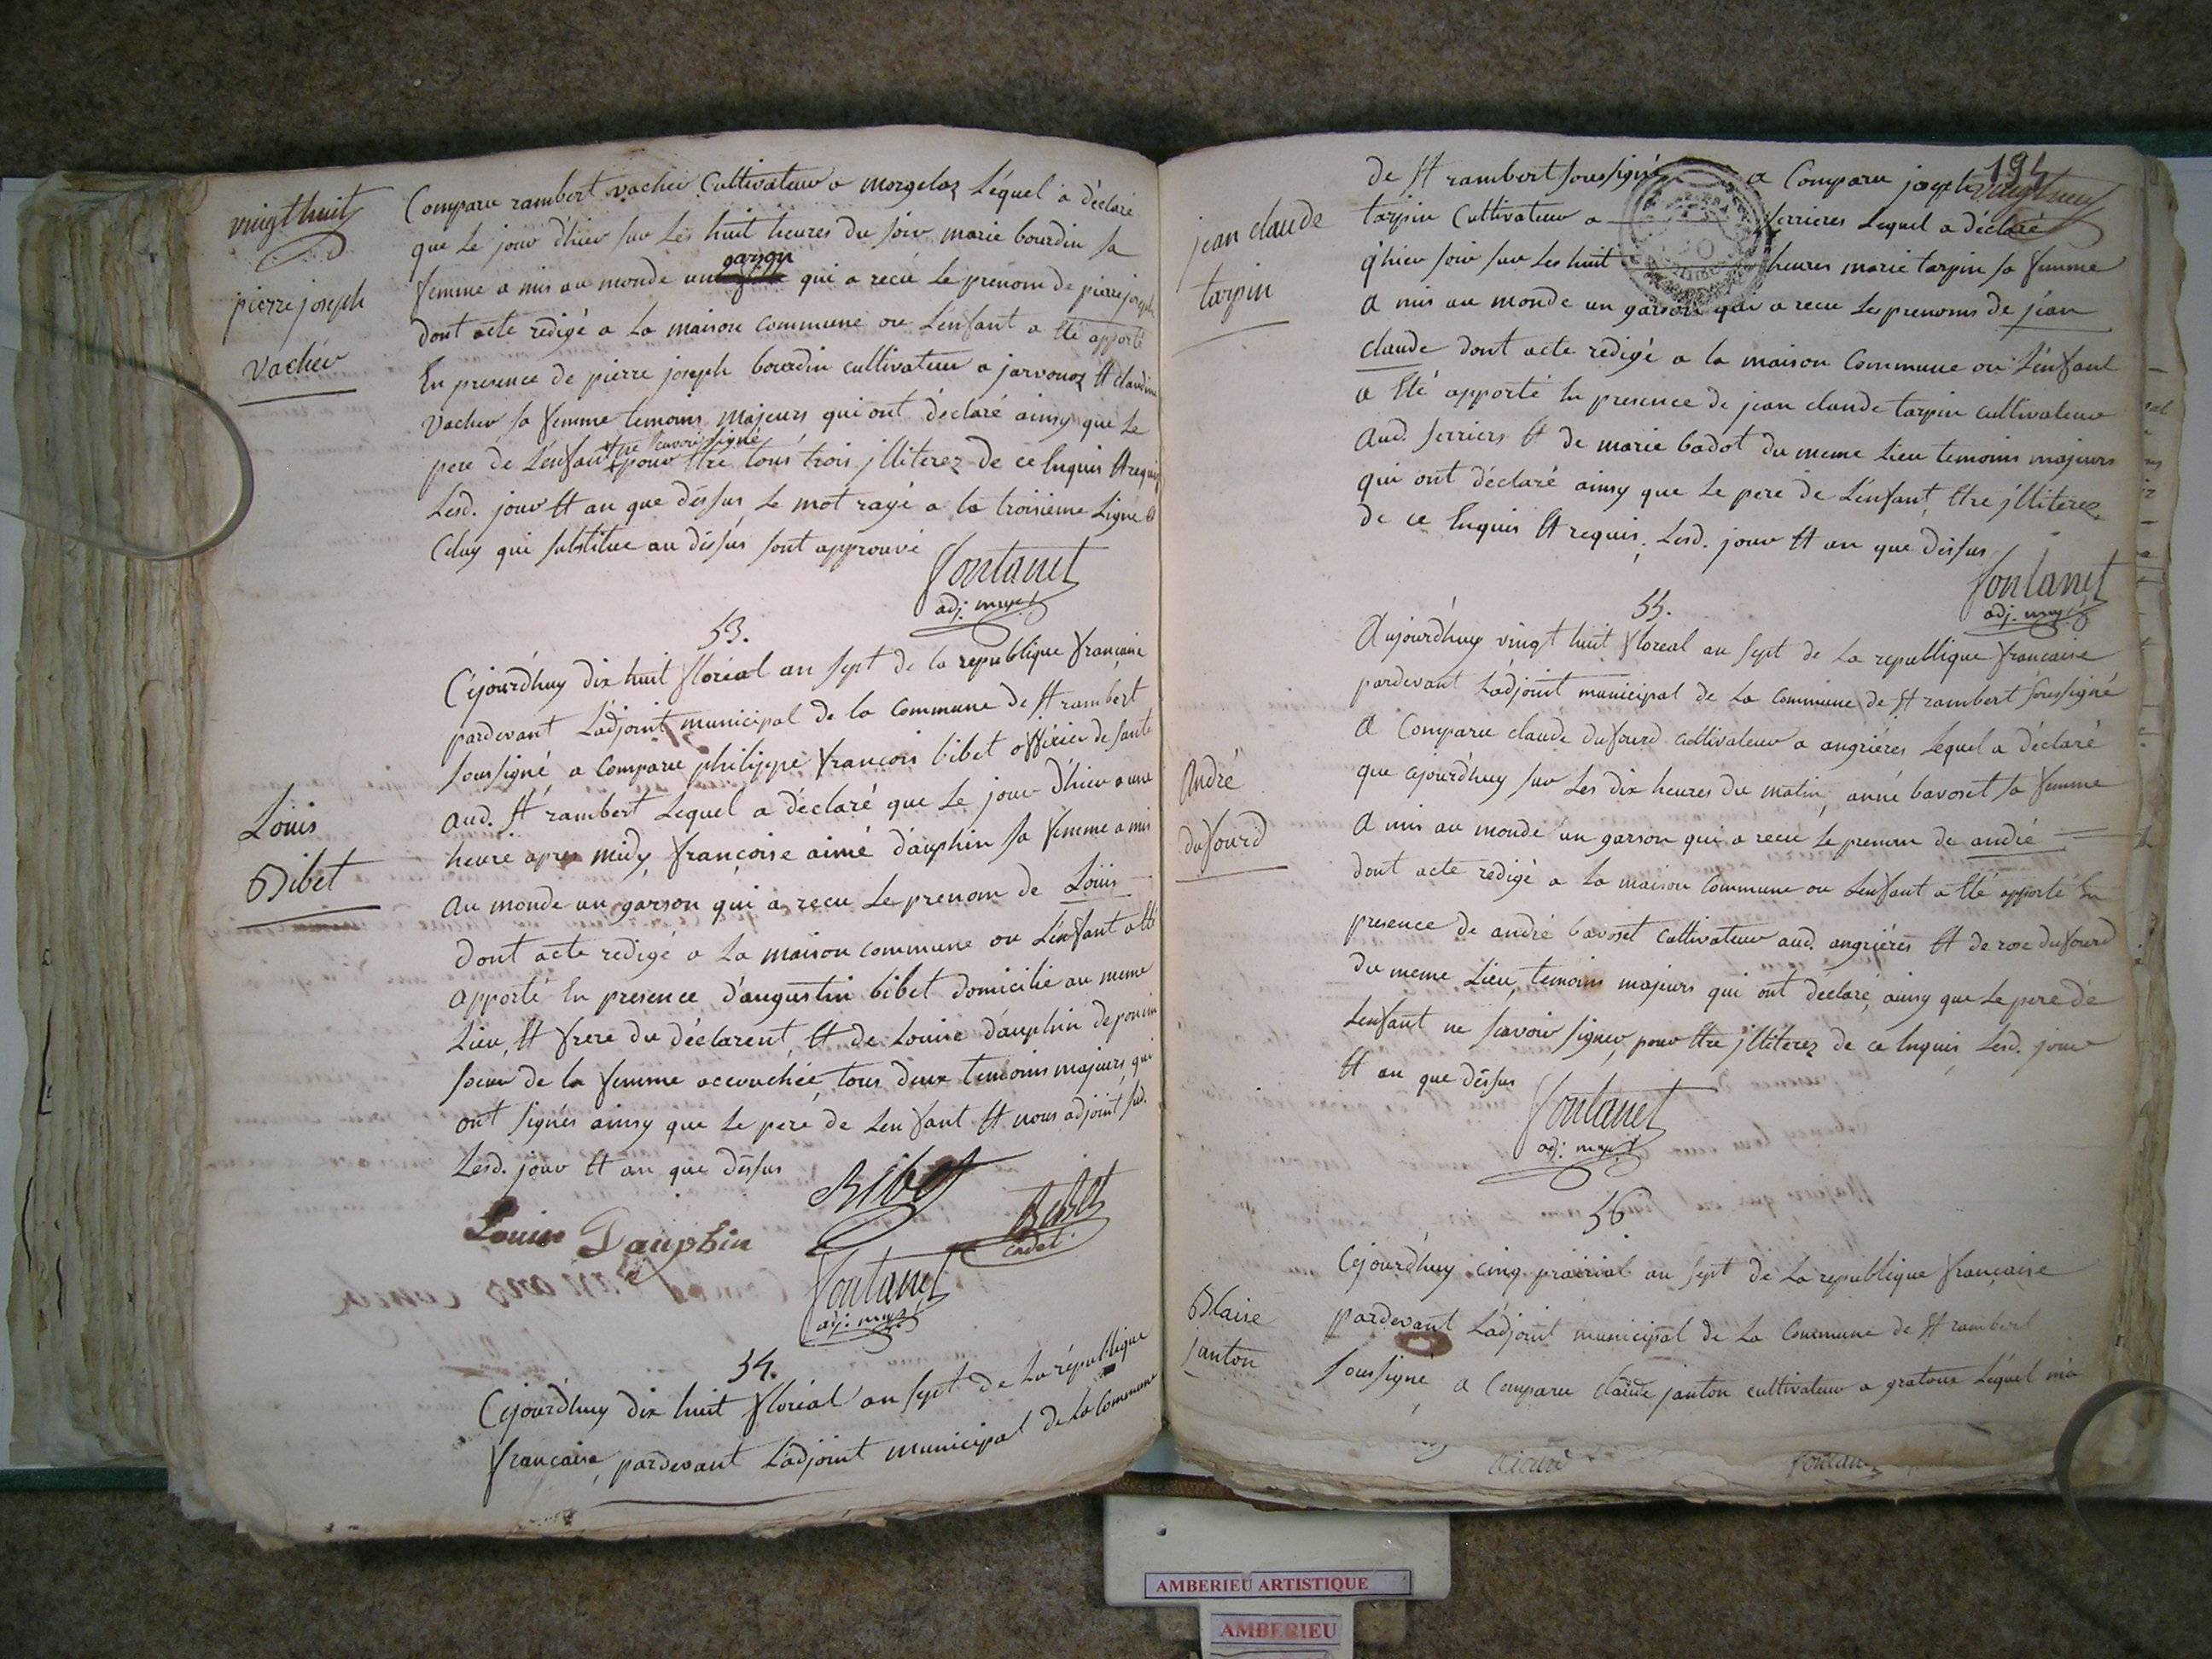 vingt huit
pierre joseph
vacher
Comparu rambert vacher Cultivateur a morgelaz Léquel a déclaré
que Le jour d'hier sur Les huit heures du soir marie bourdin sa
garson
femme a mis au monde un qui a recu Le prenom de pierre joseph
dont acte redigé a La maison commune ou Lenfant a Eté apporté
En presence de pierre joseph bourdin cultivateur a jarvonoz Et claudine
vacher sa femme temoins majeurs qui ont déclaré ainsy que Le
ne scavoir signé
pere de L'enfant pour Etre tous trois jlliterez de ce Enquis Et requis
Lesd. jour Et an que déssus Le mot rayé a la troisieme Ligne Et
Celuy qui substitue au déssus sont approuvé
fontanet
adj. mup.l
53.
Louis
Bibet
Céjourd'huy dix huit floréal an sept de la republique francaise
pardevant L'adjoint municipal de la commune de St rambert
soussigné a comparu philippe francois bibet officier de santé
aud. St rambert Lequel a déclaré que Le jour d'hier a une
heure apres midy, françoise aimé dauphin sa femme a mis
au monde un garson qui a recu Le prenom de Louis
dont acte redigé a La maison commune ou L'enfant a Eté
apporté En presence d'augustin bibet domicilié au meme
Lieu, Et frere du déclarent, Et de Louise dauphin de poncin
soeur de la femme accouchée, tous deux temoins majeurs, qui
ont signés ainsy que Le pere de Lenfant Et nous adjoint sud.
Lesd. jour Et an que déssus
Bibet
Louise Dauphin
Bibet
cadet
fontanet
adj. mup.l
54.
Cejourd'huy dix huit floréal an sept de La république
francaise, pardevant L'adjoint municipal de La Commune
194
vingt neuf
jean claude
tarpin
de St rambert soussigné a Comparu joseph
tarpin Cultivateur a serrieres Lequel a déclaré
q'hier soir sur Les huit heures marie tarpin sa femme
a mis au monde un garson qui a recu Les prenoms de jéan
claude dont acte redigé a la maison Commune ou L'enfant
a Eté apporté En presence de jean claude tarpin cultivateur
aud. serriers Et de marie badot du meme Lieu temoins majeurs
qui ont déclaré ainsy que Le pere de L'enfant, Etre jlliterez,
de ce Enquis Et requis, Lesd. jour Et an que déssus
fontanet
adj. mup.l
55.
André
dufourd
Aujourd'huy vingt huit floreal an sept de La republique francaise
pardevant L'adjoint municipal de La commune de St rambert soussigné
a Comparu claude dufourd cultivateur a angriéres Lequel a déclaré
que cejourd'huy sur Les dix heures du matin, anné bavoset sa femme
a mis au monde un garson qui a recu Le prenom de andré
dont acte redigé a La maison commune ou Lenfant a Eté apporté En
presence de andré bavoset cultivateur aud. angriéres Et de rose dufourd
du meme Lieu, temoins majeurs qui ont déclaré, ainsy que Le pere de
Lenfant ne scavoir signer, pour Etre jlliterez de ce Enquis, Lesd. jour
Et an que déssus
fontanet
adj. mup.l
56
Blaise
janton
Cejourd'huy cinq prairial an sept de La republique française
pardevant L'adjoint municipal de La Commune de St rambert
soussigné, a Comparu claude janton cultivateur a gratoux Léquel m'a
AMBERIEU ARTISTIQUE
AMBERIEU